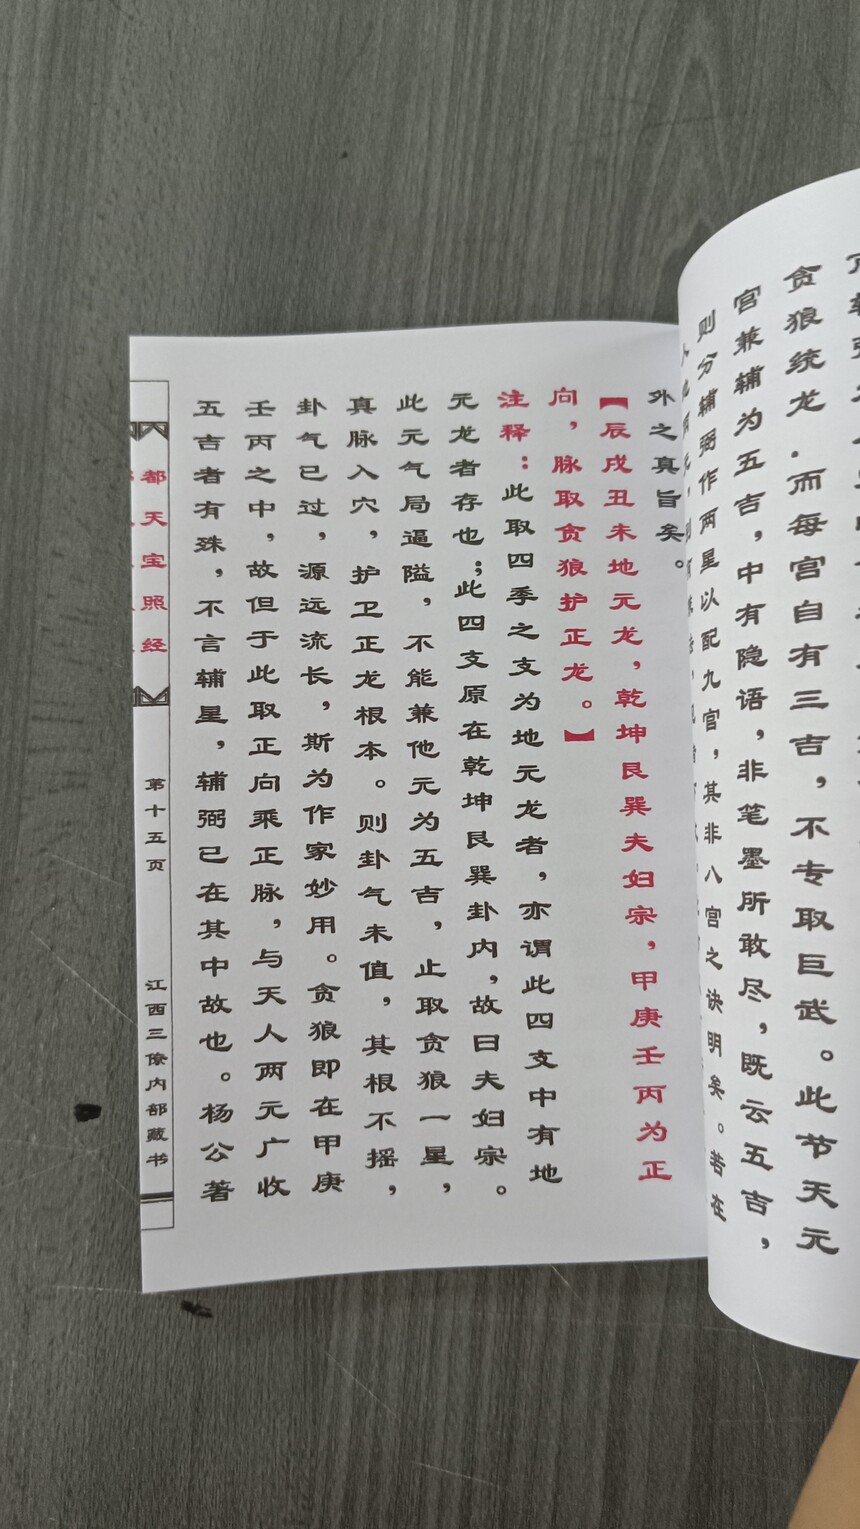 贪狼统龙．而每宫自有三吉，不专取巨武。此节天元
宫兼辅为五吉，中有隐语，非笔墨所敢尽，既云五吉，
则分辅弼作两星以配九宫，其非八宫之诀明矣。若在
外之真旨矣。
【辰戌丑未地元龙，乾坤艮巽夫妇宗，甲庚壬丙为正
向，脉取贪狼护正龙。】
注释：此取四季之支为地元龙者，亦谓此四支中有地
元龙者存也；此四支原在乾坤艮巽卦内，故曰夫妇宗。
此元气局逼隘，不能兼他元为五吉，止取贪狼一星，
真脉入穴，护卫正龙根本。则卦气未值，其根不摇，
卦气已过，源远流长，斯为作家妙用。贪狼即在甲庚
壬丙之中，故但于此取正向乘正脉，与天人两元广收
五吉者有殊，不言辅星，辅弼已在其中故也。杨公著
都天宝照经
第十五页
江西三僚内部藏书